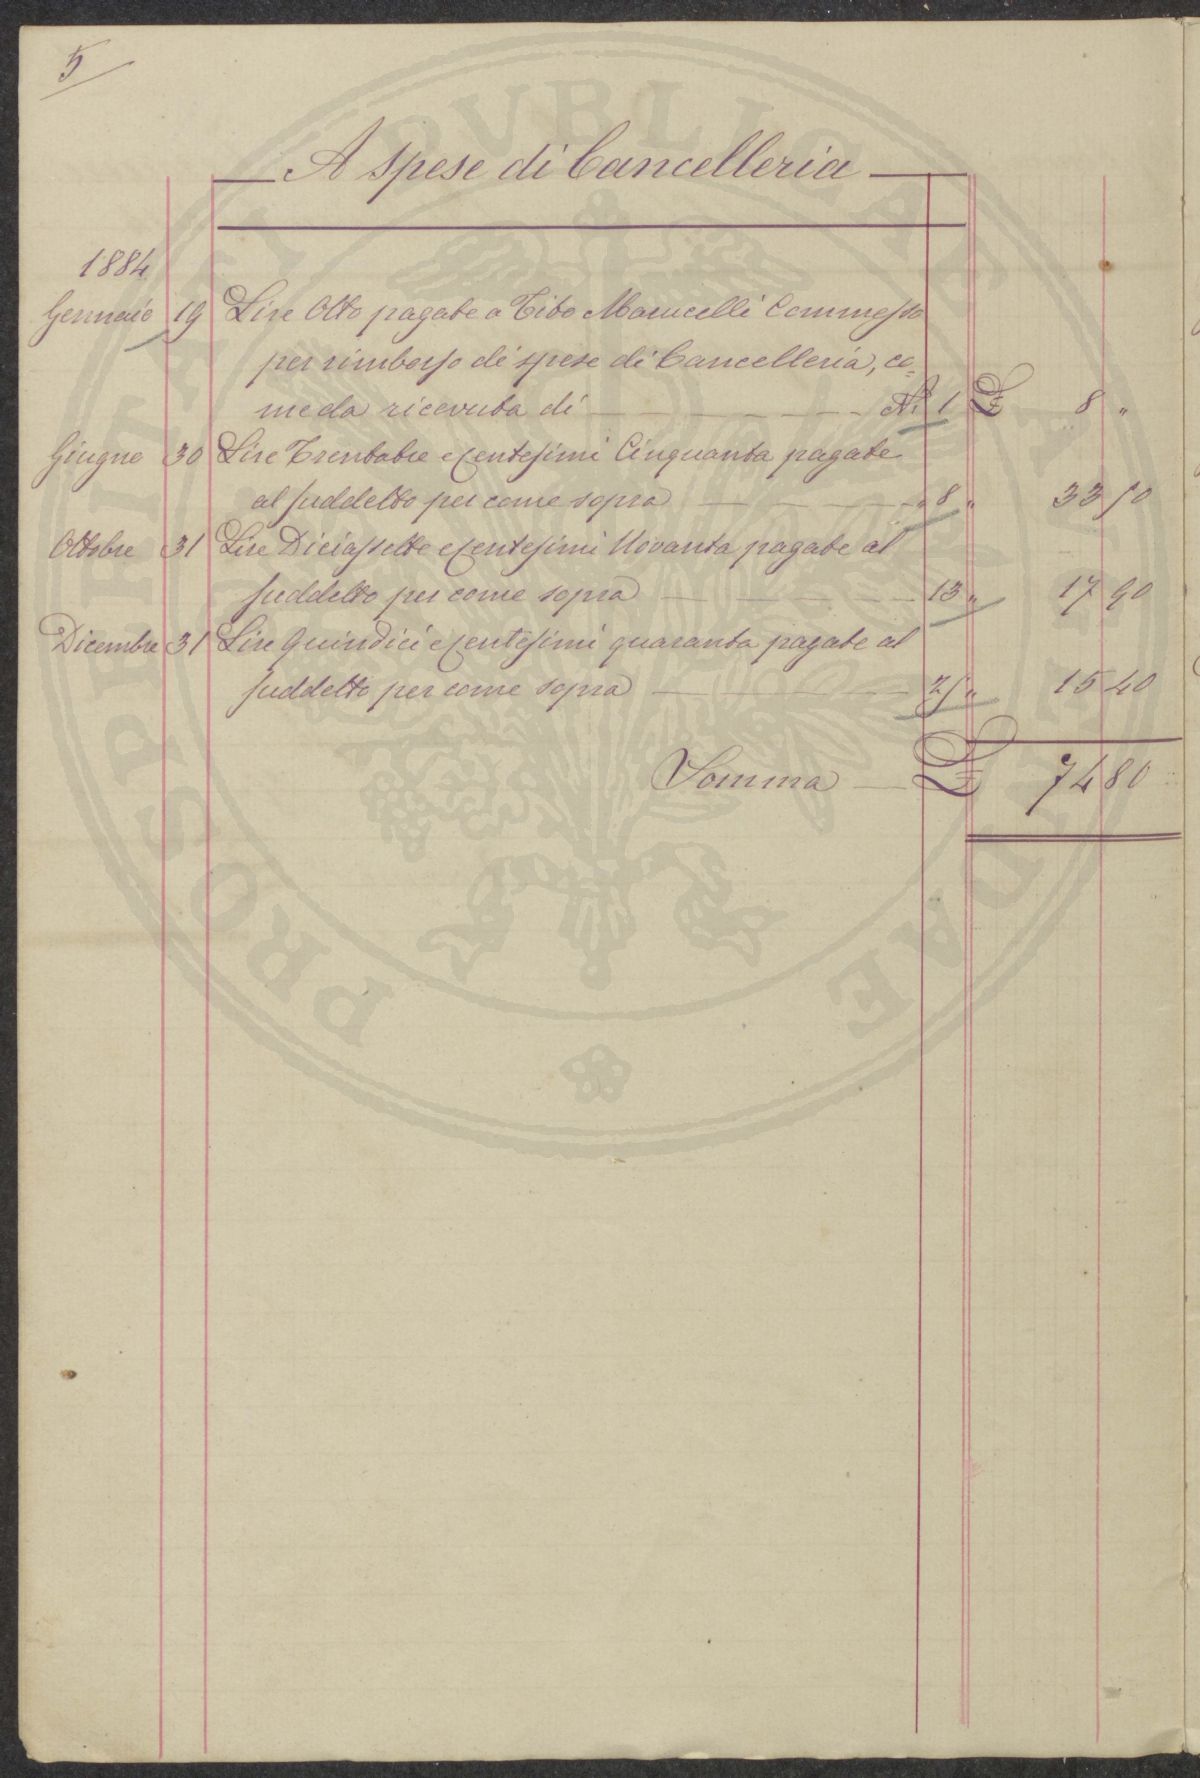 5
A spese di Cancelleria
1884
Gennaio 19 Lire Otto pagate a Tito Marucelli Commesso
per rimborso di spese di Cancelleria, co=
me da ricevuta di N.° 1 £ 8 "
Giugno 30 Lire Trentatre e centesimi Cinquanta pagate
al suddetto per come sopra " 8 " 33 50
Ottobre 31 Lire Diciassette e centesimi Novanta pagate al
suddetto per come sopra 13 " 17 90
Dicembre 31 Lire Quindici e centesimi quaranta pagate al
suddetto per come sopra 25 " 15 40
Somma £ 74 80
PROSPERITATI PVBLICAE AVGENDAE